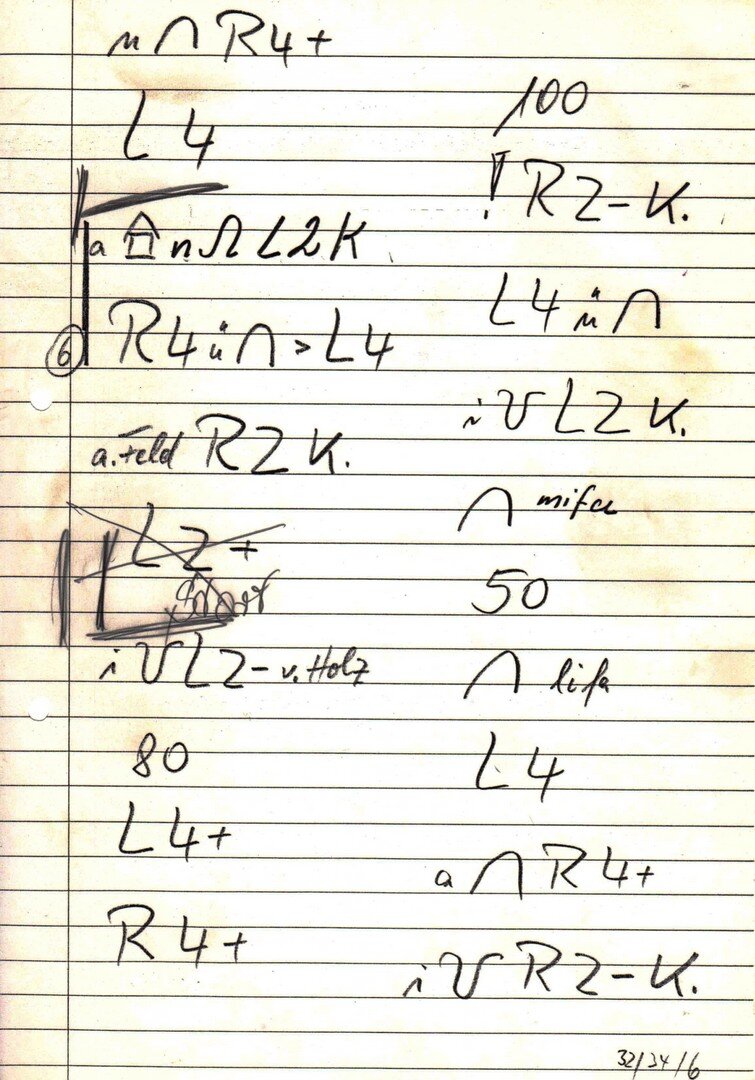 n ∩ R4+
L4
a n Ω L2K
⑥ R4 ü ∩ > L4
a. Feld R2 K.
L2+
i V L2- v. Holz
80
L4+
R4+
100
! R2-K.
L4 ü ∩
i V L2 K.
∩ mifa
50
∩ lifa
L4
a ∩ R4+
i V R2-K.
32/34/6